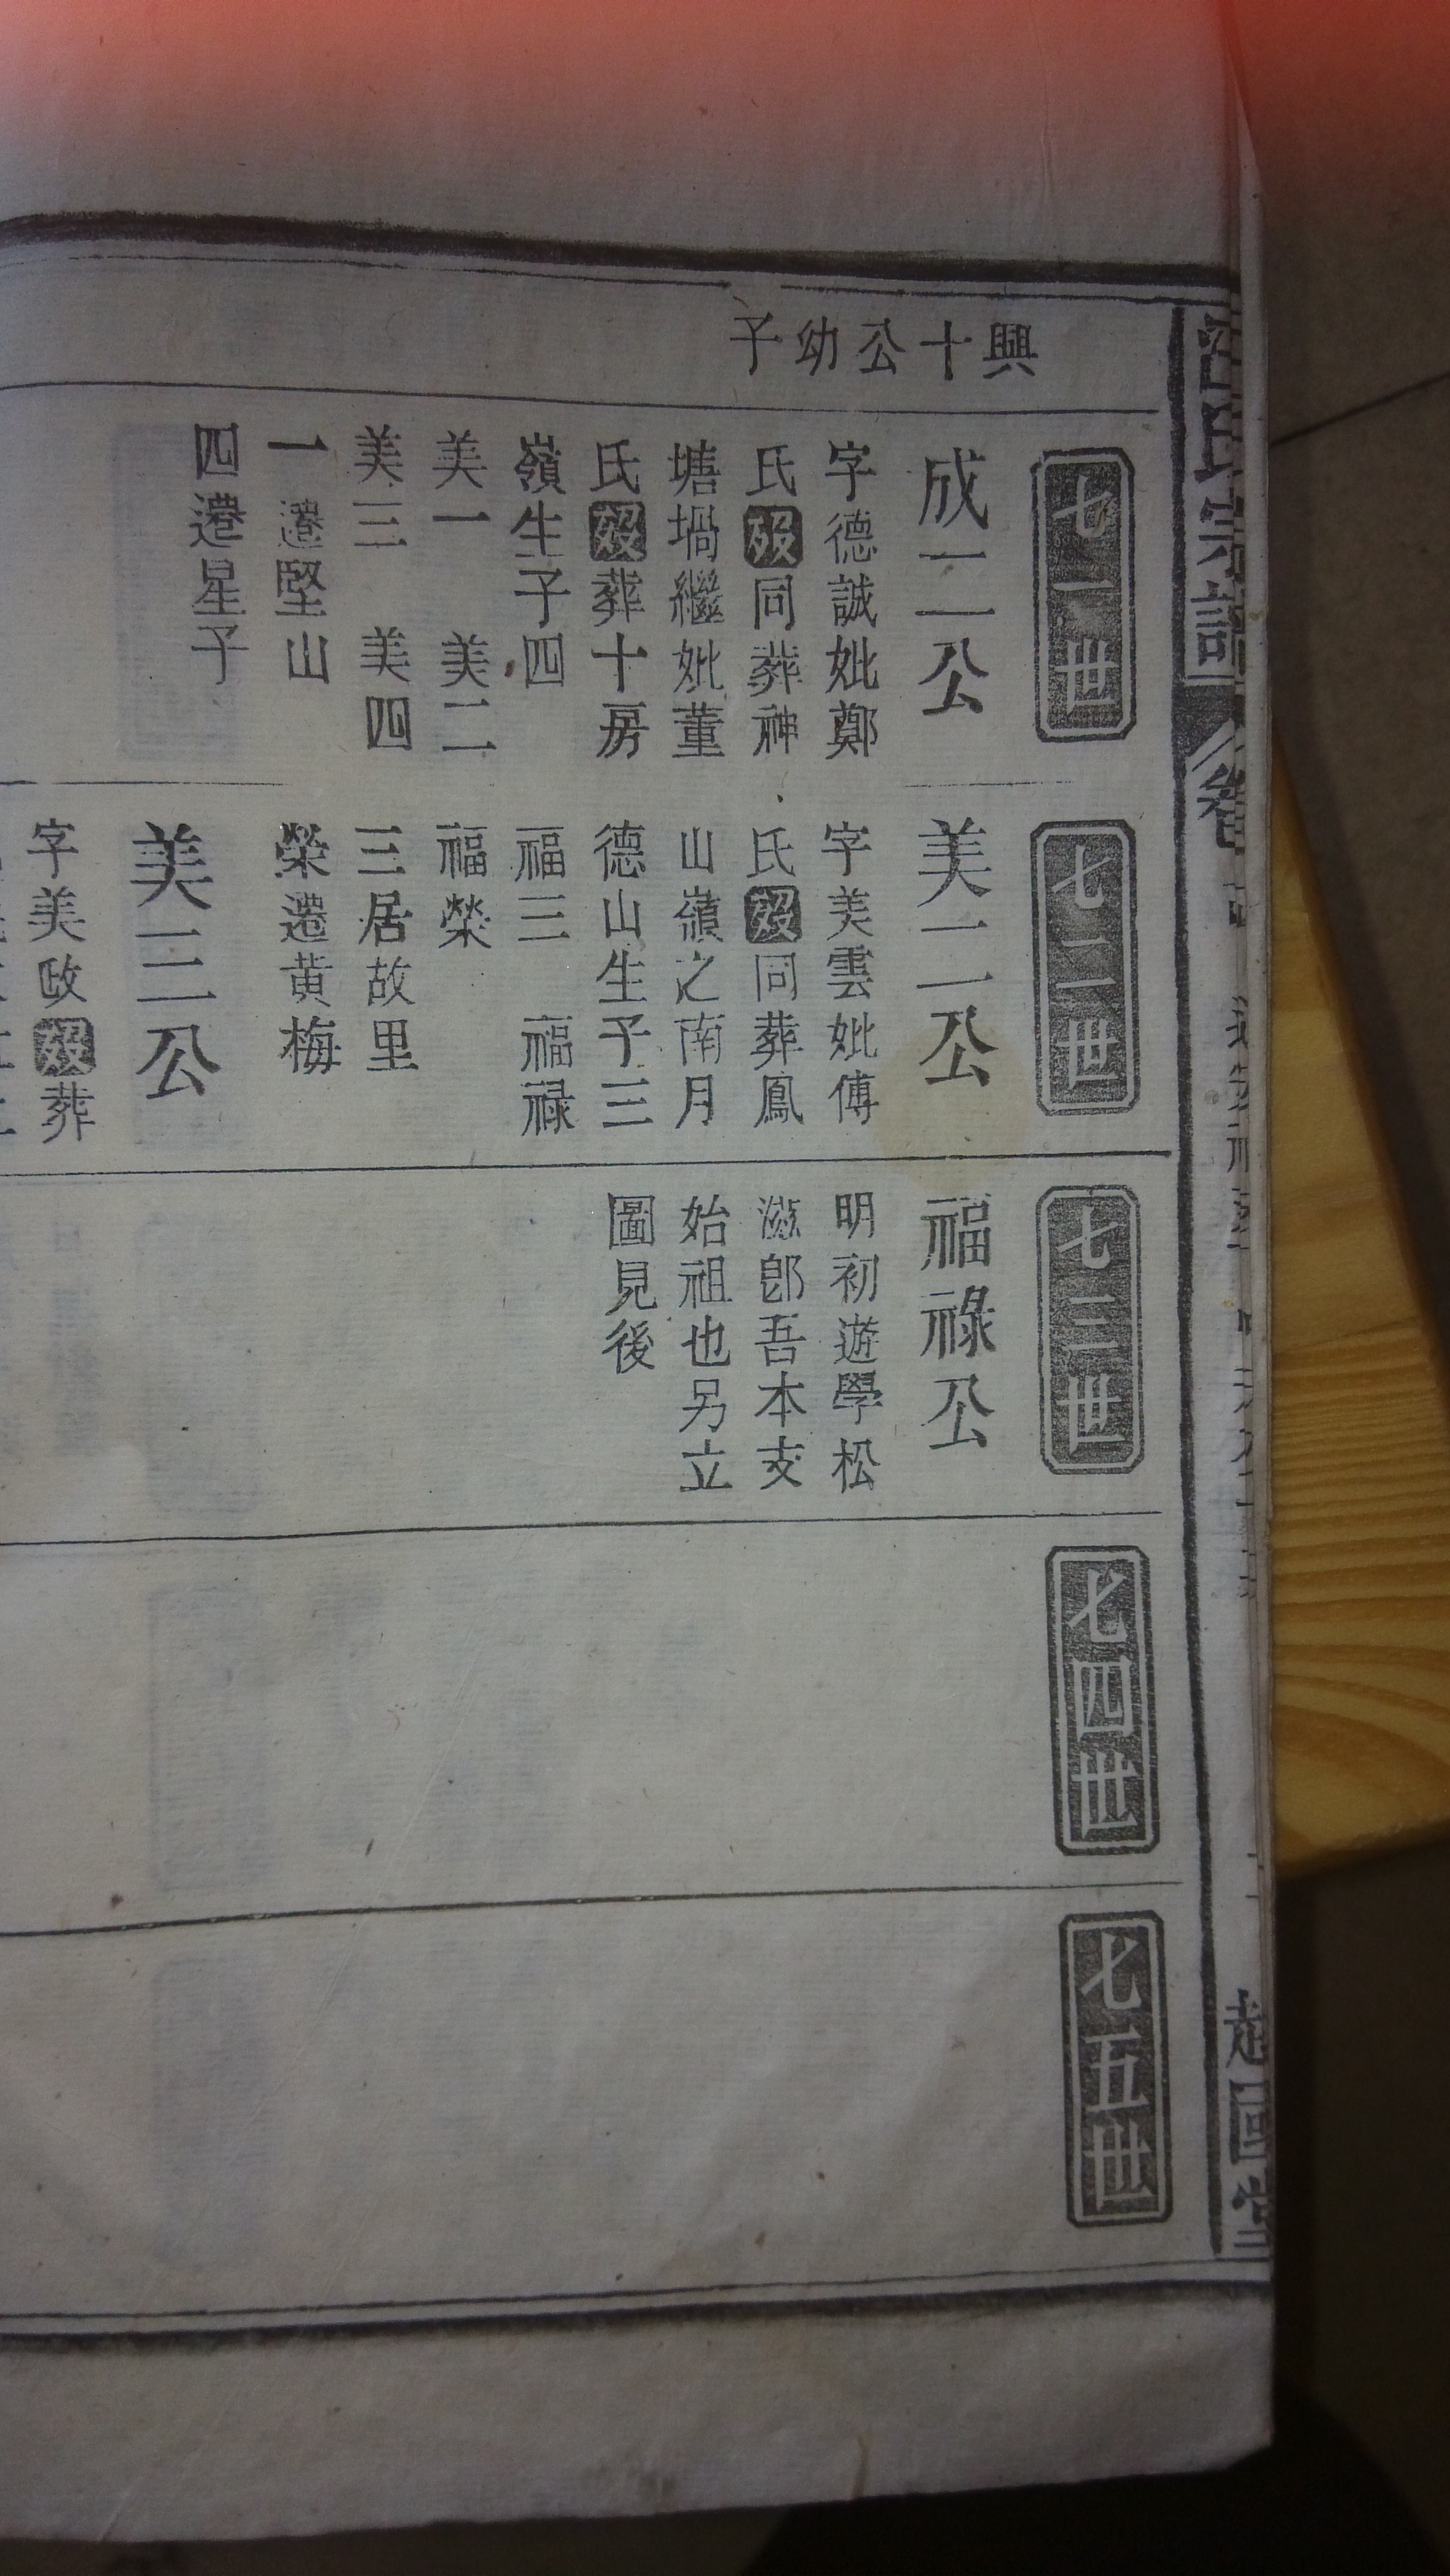 氏宗譜
卷
起國堂
興十公幼子
七一世
成二公
字德誠妣鄭
氏歿同葬神
塘塥繼妣董
氏歿葬十房
嶺生子四
美一 美二
美三 美四
一遷堅山
四遷星子
七二世
美二公
字美雲妣傅
氏歿同葬鳳
山嶺之南月
德山生子三
福三 福禄
福榮
三居故里
榮遷黄梅
美三公
字美政歿葬
七三世
福祿公
明初遊學松
滋郎吾本支
始祖也另立
圖見後
七四世
七五世